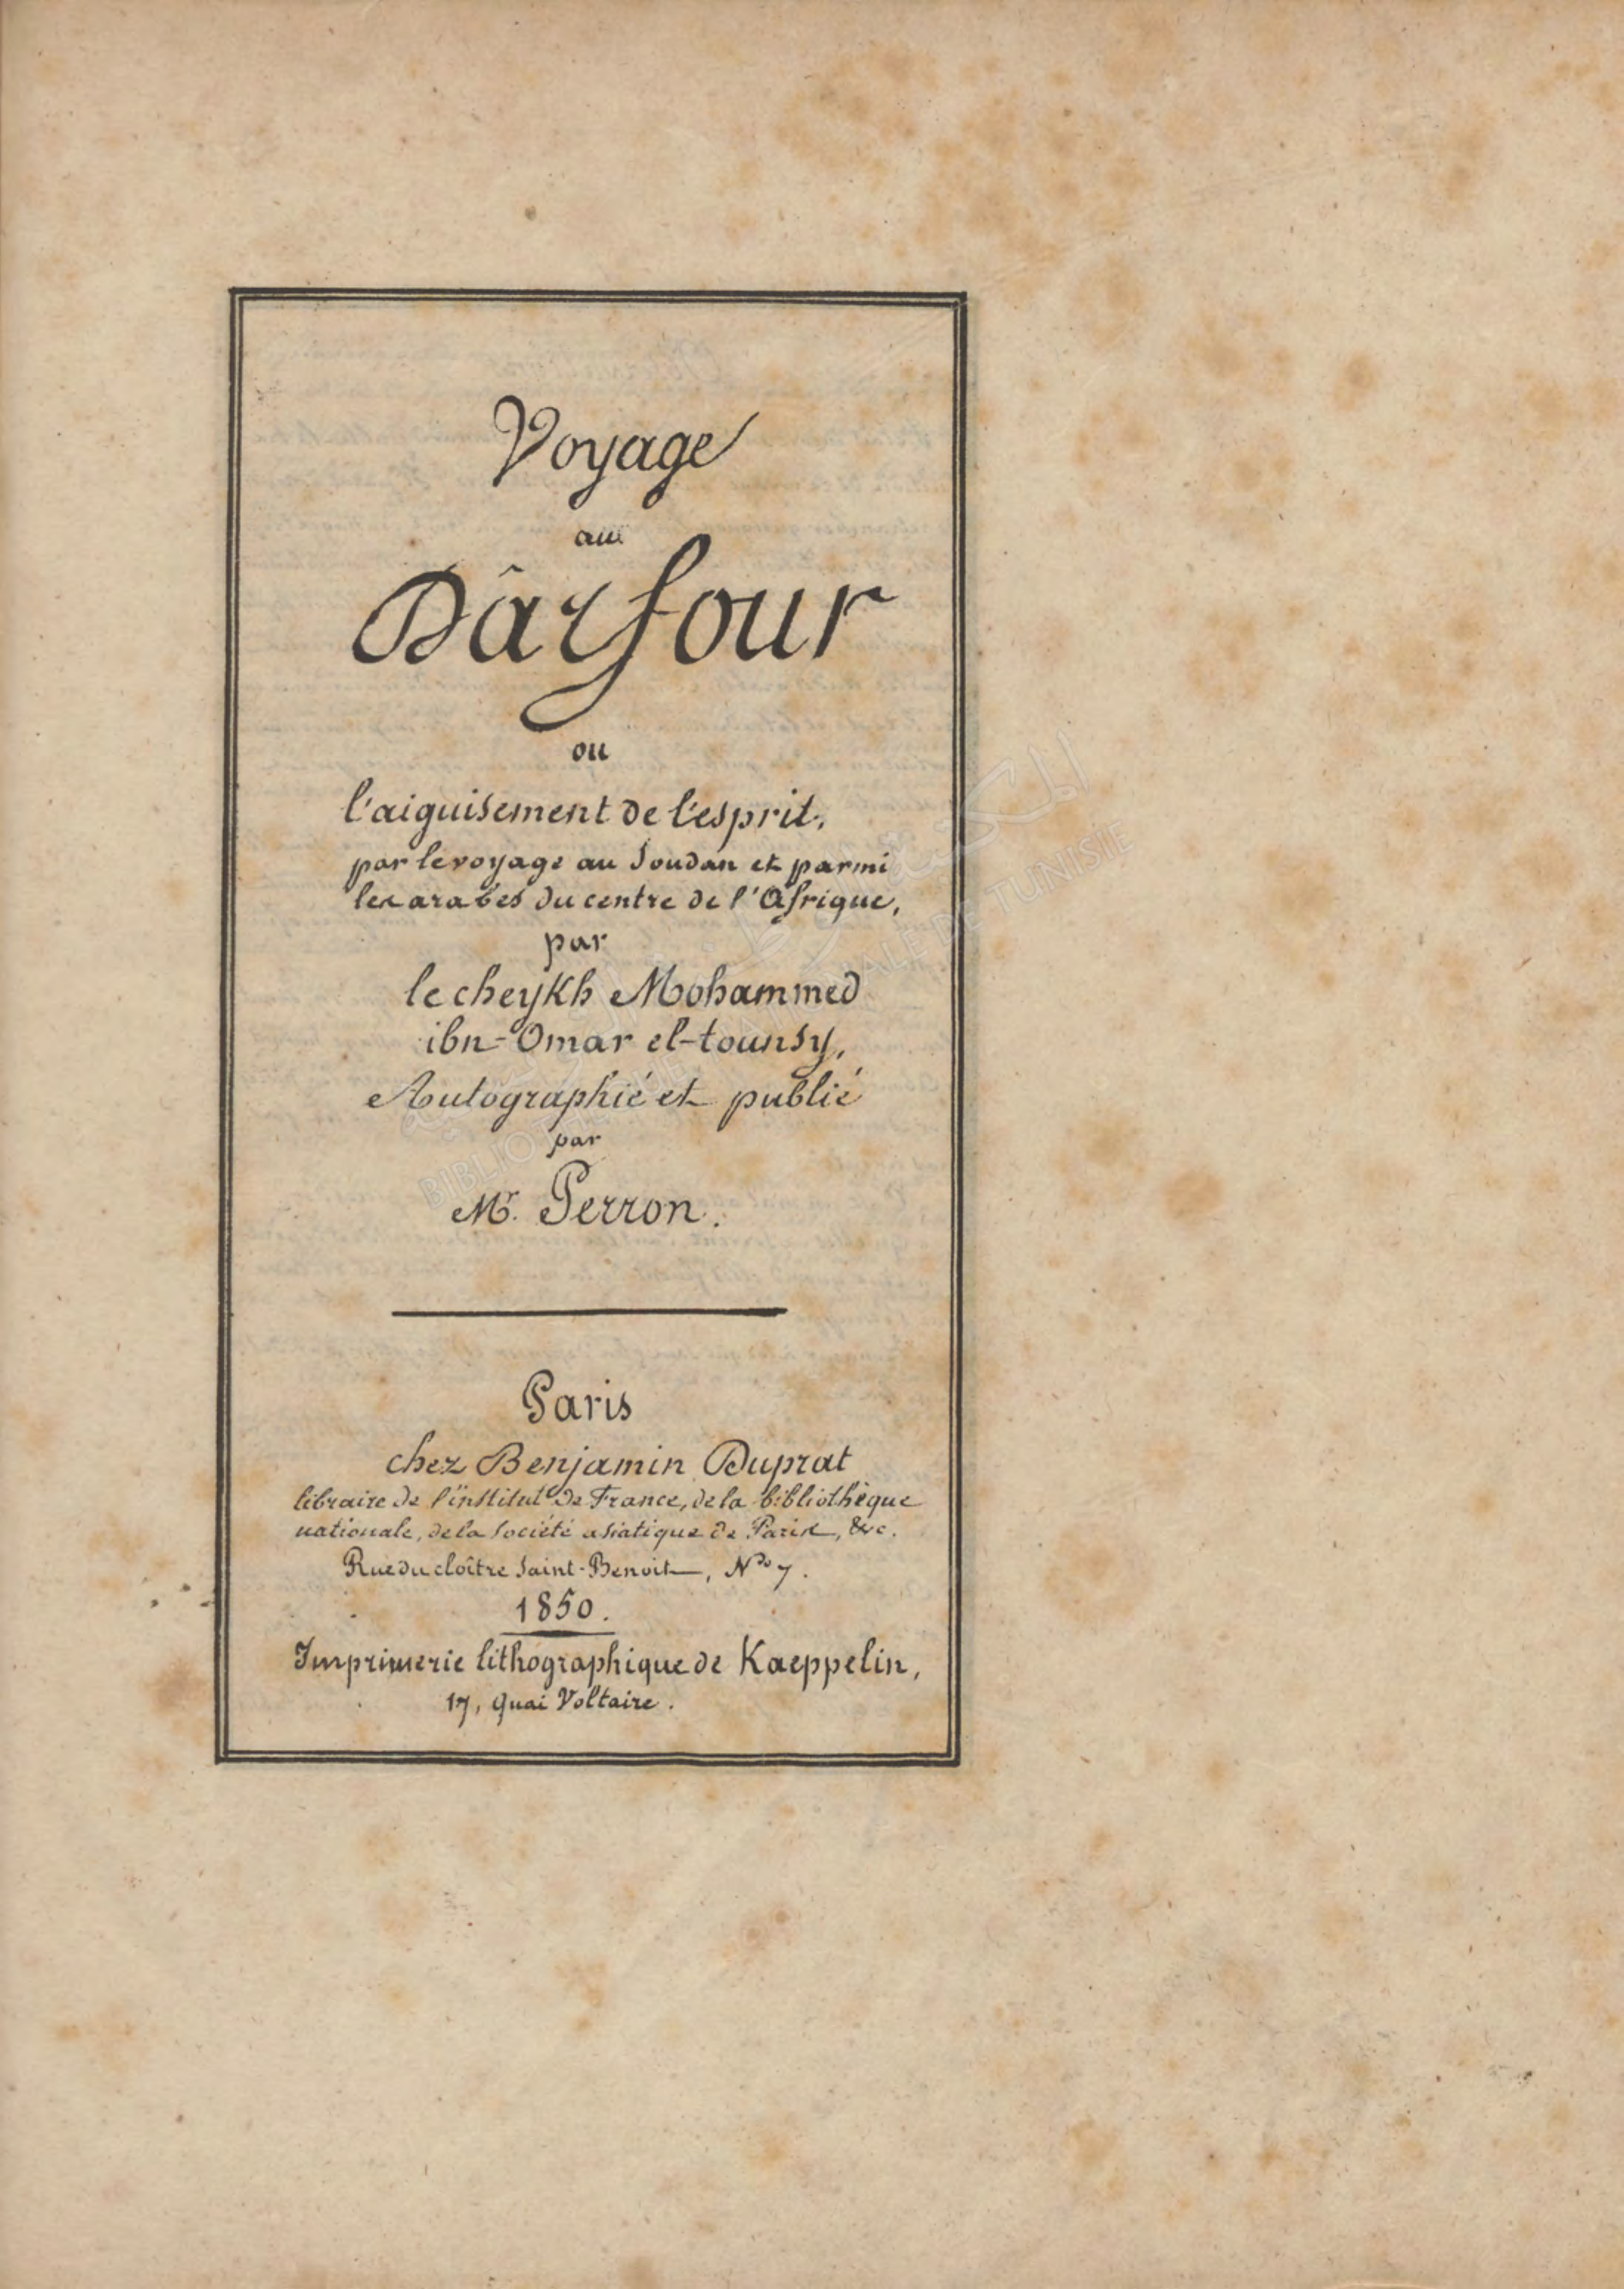 Voyage
au
Dârfour
ou
l'aiguisement de l'esprit,
par le voyage au Soudan et parmi
les arabes du centre de l'Afrique,
par
le cheykh Mohammed
ibn-Omar el-tounsy,
Autographié et publié
par
Mr. Perron.
Paris
chez Benjamin Duprat
libraire de l'institut de France, de la bibliothèque
nationale, de la société asiatique de Paris, &c.
Rue du cloître Saint-Benoit, No 7.
1850.
Imprimerie lithographique de Kaeppelin,
17, Quai Voltaire.
BIBLIOTHÈQUE NATIONALE DE TUNISIE